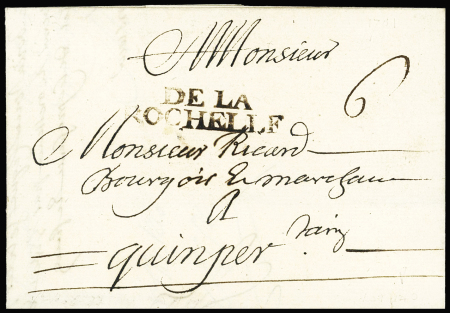 Monsieur
6
DE LA
ROCHELLE
Monsieur Ricard
Bourgois & marchant
A
quinper